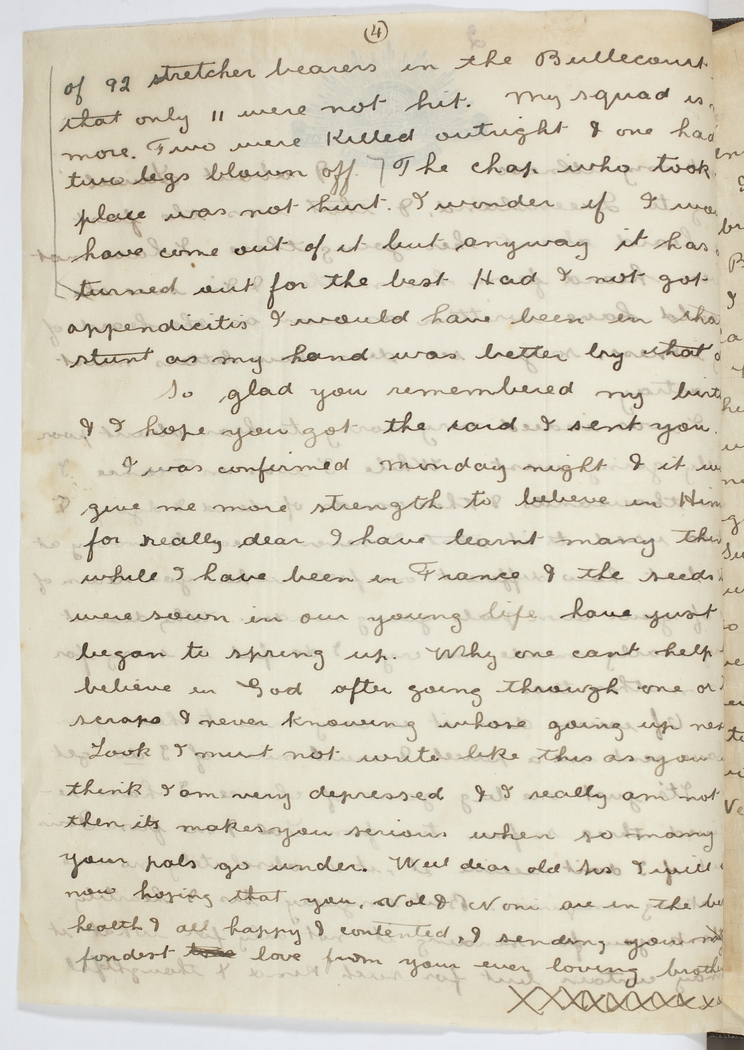 (4)
of 92 stretcher bearers in the Bullecourt
that only 11 were not hit. My squad is
more. Two were Killed outright & one had
two legs blown off.] The chap who took
place was not hurt. I wonder if I wo
have come out of it but anyway it has
turned out for the best Had I not got
appendicitis I would have been in tha
stunt as my hand was better by that
So glad you remembered my birt
& I hope you got the card I sent you.
I was confirmed Monday night & it w
give me more strength to believe in Him
for really dear I have learnt many thin
while I have been in France & the seeds
were sown in our young life have just
began to spring up. Why one cant help
believe in God after going through one or
scraps & never knowing whose going up nex
Look I must not write like this as you
think I am very depressed & I really am not
then its makes you serious when so many
your pals go under. Well dear old Sis I will
now hoping that you, Val & Noni are in the be
health & all happy & contented, & sending you my
fondest love from your ever loving brothe
XXXXXXXXX